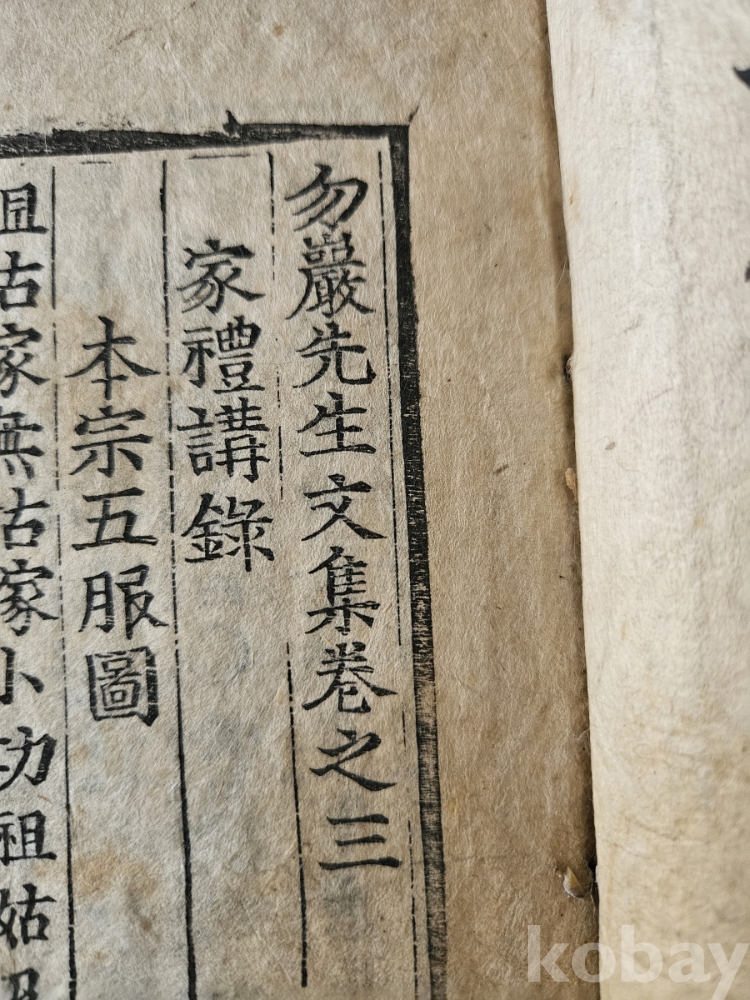 勿巖先生文集卷之三
家禮講錄
本宗五服圖
姑家無姑家小功祖姑
kobay